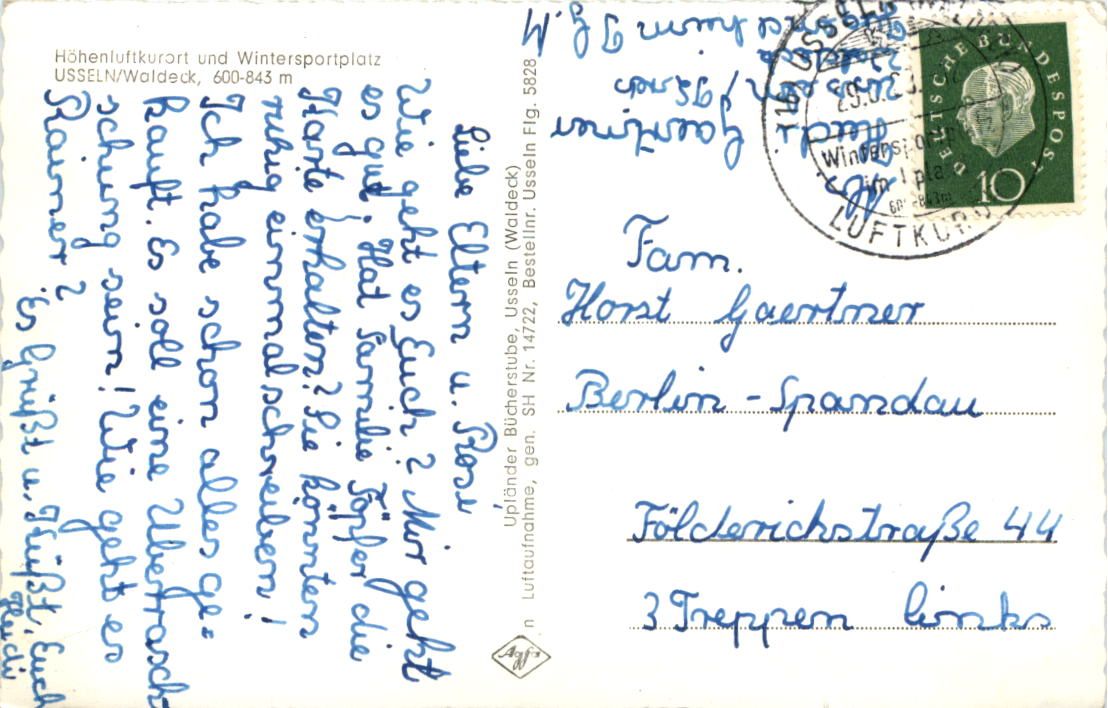 Höhenluftkurort und Wintersportplatz
USSELN/Waldeck, 600-843 m
Liebe Eltern u. Rosi
Wie geht es Euch? Mir geht
es gut. Hat Familie Töpfer die
Karte erhalten? Sie könnten
ruhig einmal schreiben!
Ich habe schon alles ge=
kauft. Es soll eine Überrasch
schung sein! Wie geht es
Rainer?
Es Grüßt u. Küßt, Euch
Heidi
Upländer Bücherstube, Usseln (Waldeck)
n Luftaufnahme, gen. SH Nr. 14722, Bestellnr. Usseln Flg. 5828
Agfa
Abs.
Heidi Gaertner
Usseln
Waldeck
USSELN
Wintersport
LUFTKURO
DEUTSCHE BUNDESPOST
10
Fam.
Horst Gaertner
Berlin - Spandau
Földerichstraße 44
3 Treppen links